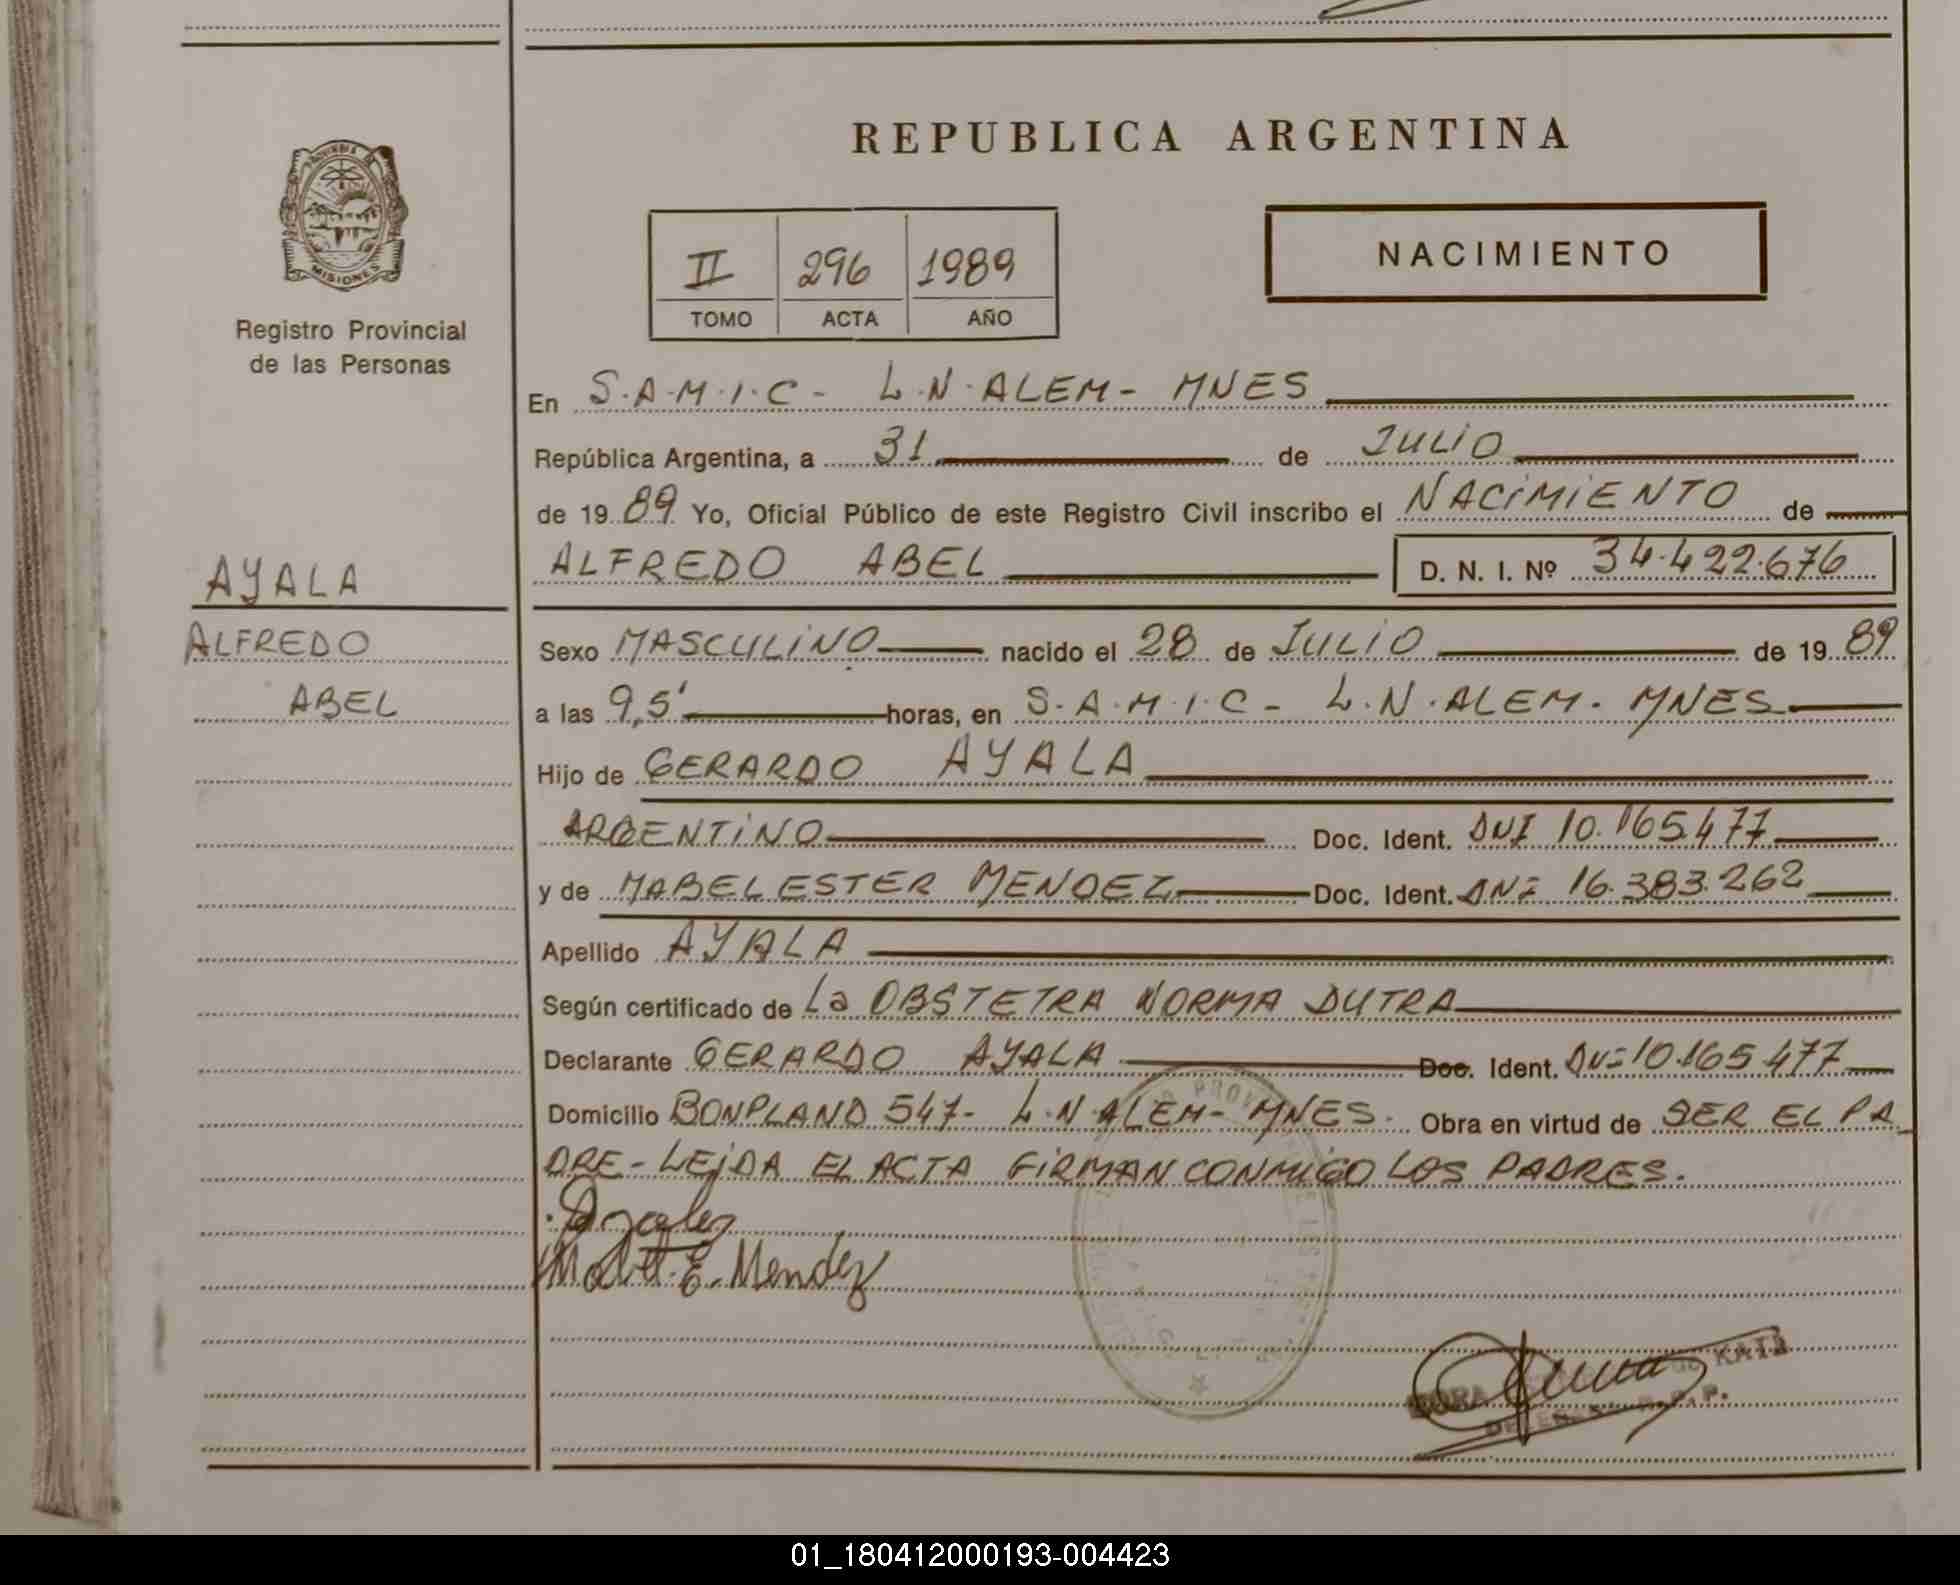 REPUBLICA ARGENTINA
PROVINCIA DE
MISIONES
Registro Provincial
de las Personas
II 296 1989
TOMO ACTA AÑO
NACIMIENTO
En S.A.M.I.C- L.N.ALEM- MNES
República Argentina, a 31 de JULIO
de 1989 Yo, Oficial Público de este Registro Civil inscribo el NACIMIENTO de
ALFREDO ABEL D. N. I. Nº 34.422.676
AYALA
ALFREDO
ABEL
Sexo MASCULINO nacido el 28 de JULIO de 1989
a las 9,5' horas, en S.A.M.I.C- L.N.ALEM. MNES
Hijo de GERARDO AYALA
ARGENTINO Doc. Ident. DNI 10.165.477
y de MABEL ESTER MENDEZ Doc. Ident. DNI 16.383.262
Apellido AYALA
Según certificado de La OBSTETRA NORMA DUTRA
Declarante GERARDO AYALA Doc. Ident. DNI 10.165.477
Domicilio BONPLAND 547- L.N.ALEM- MNES. Obra en virtud de SER EL PA
DRE- LEIDA EL ACTA FIRMAN CONMIGO LOS PADRES.
Mabel E. Mendez
01_180412000193-004423